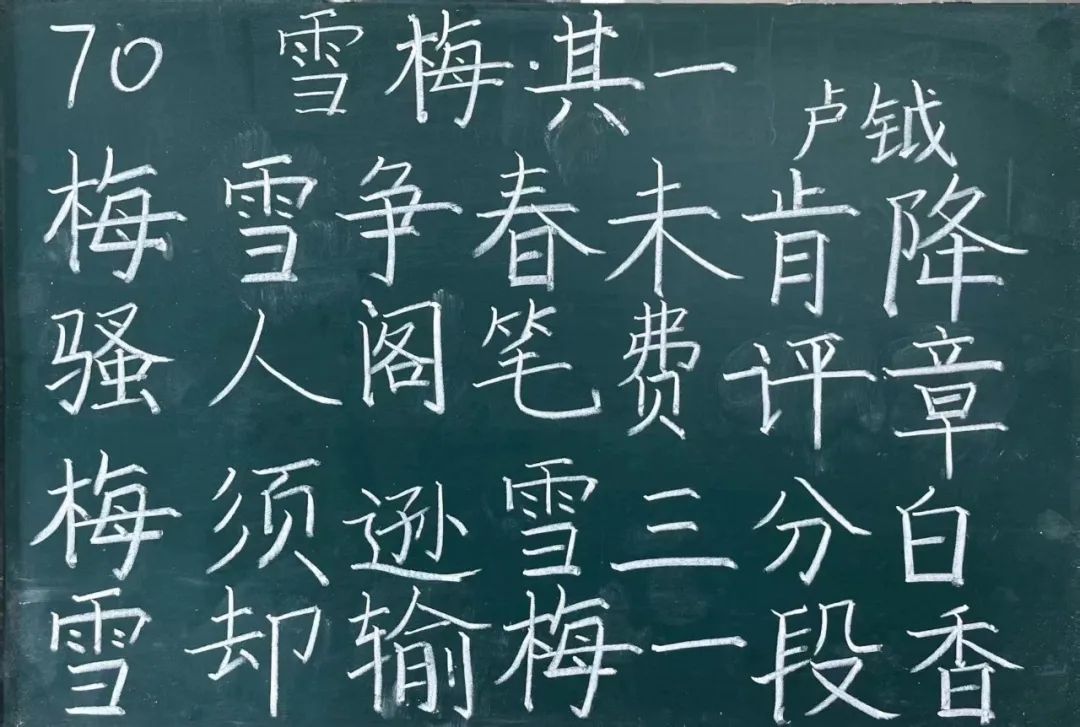 70 雪梅·其一
卢钺
梅雪争春未肯降
骚人阁笔费评章
梅须逊雪三分白
雪却输梅一段香